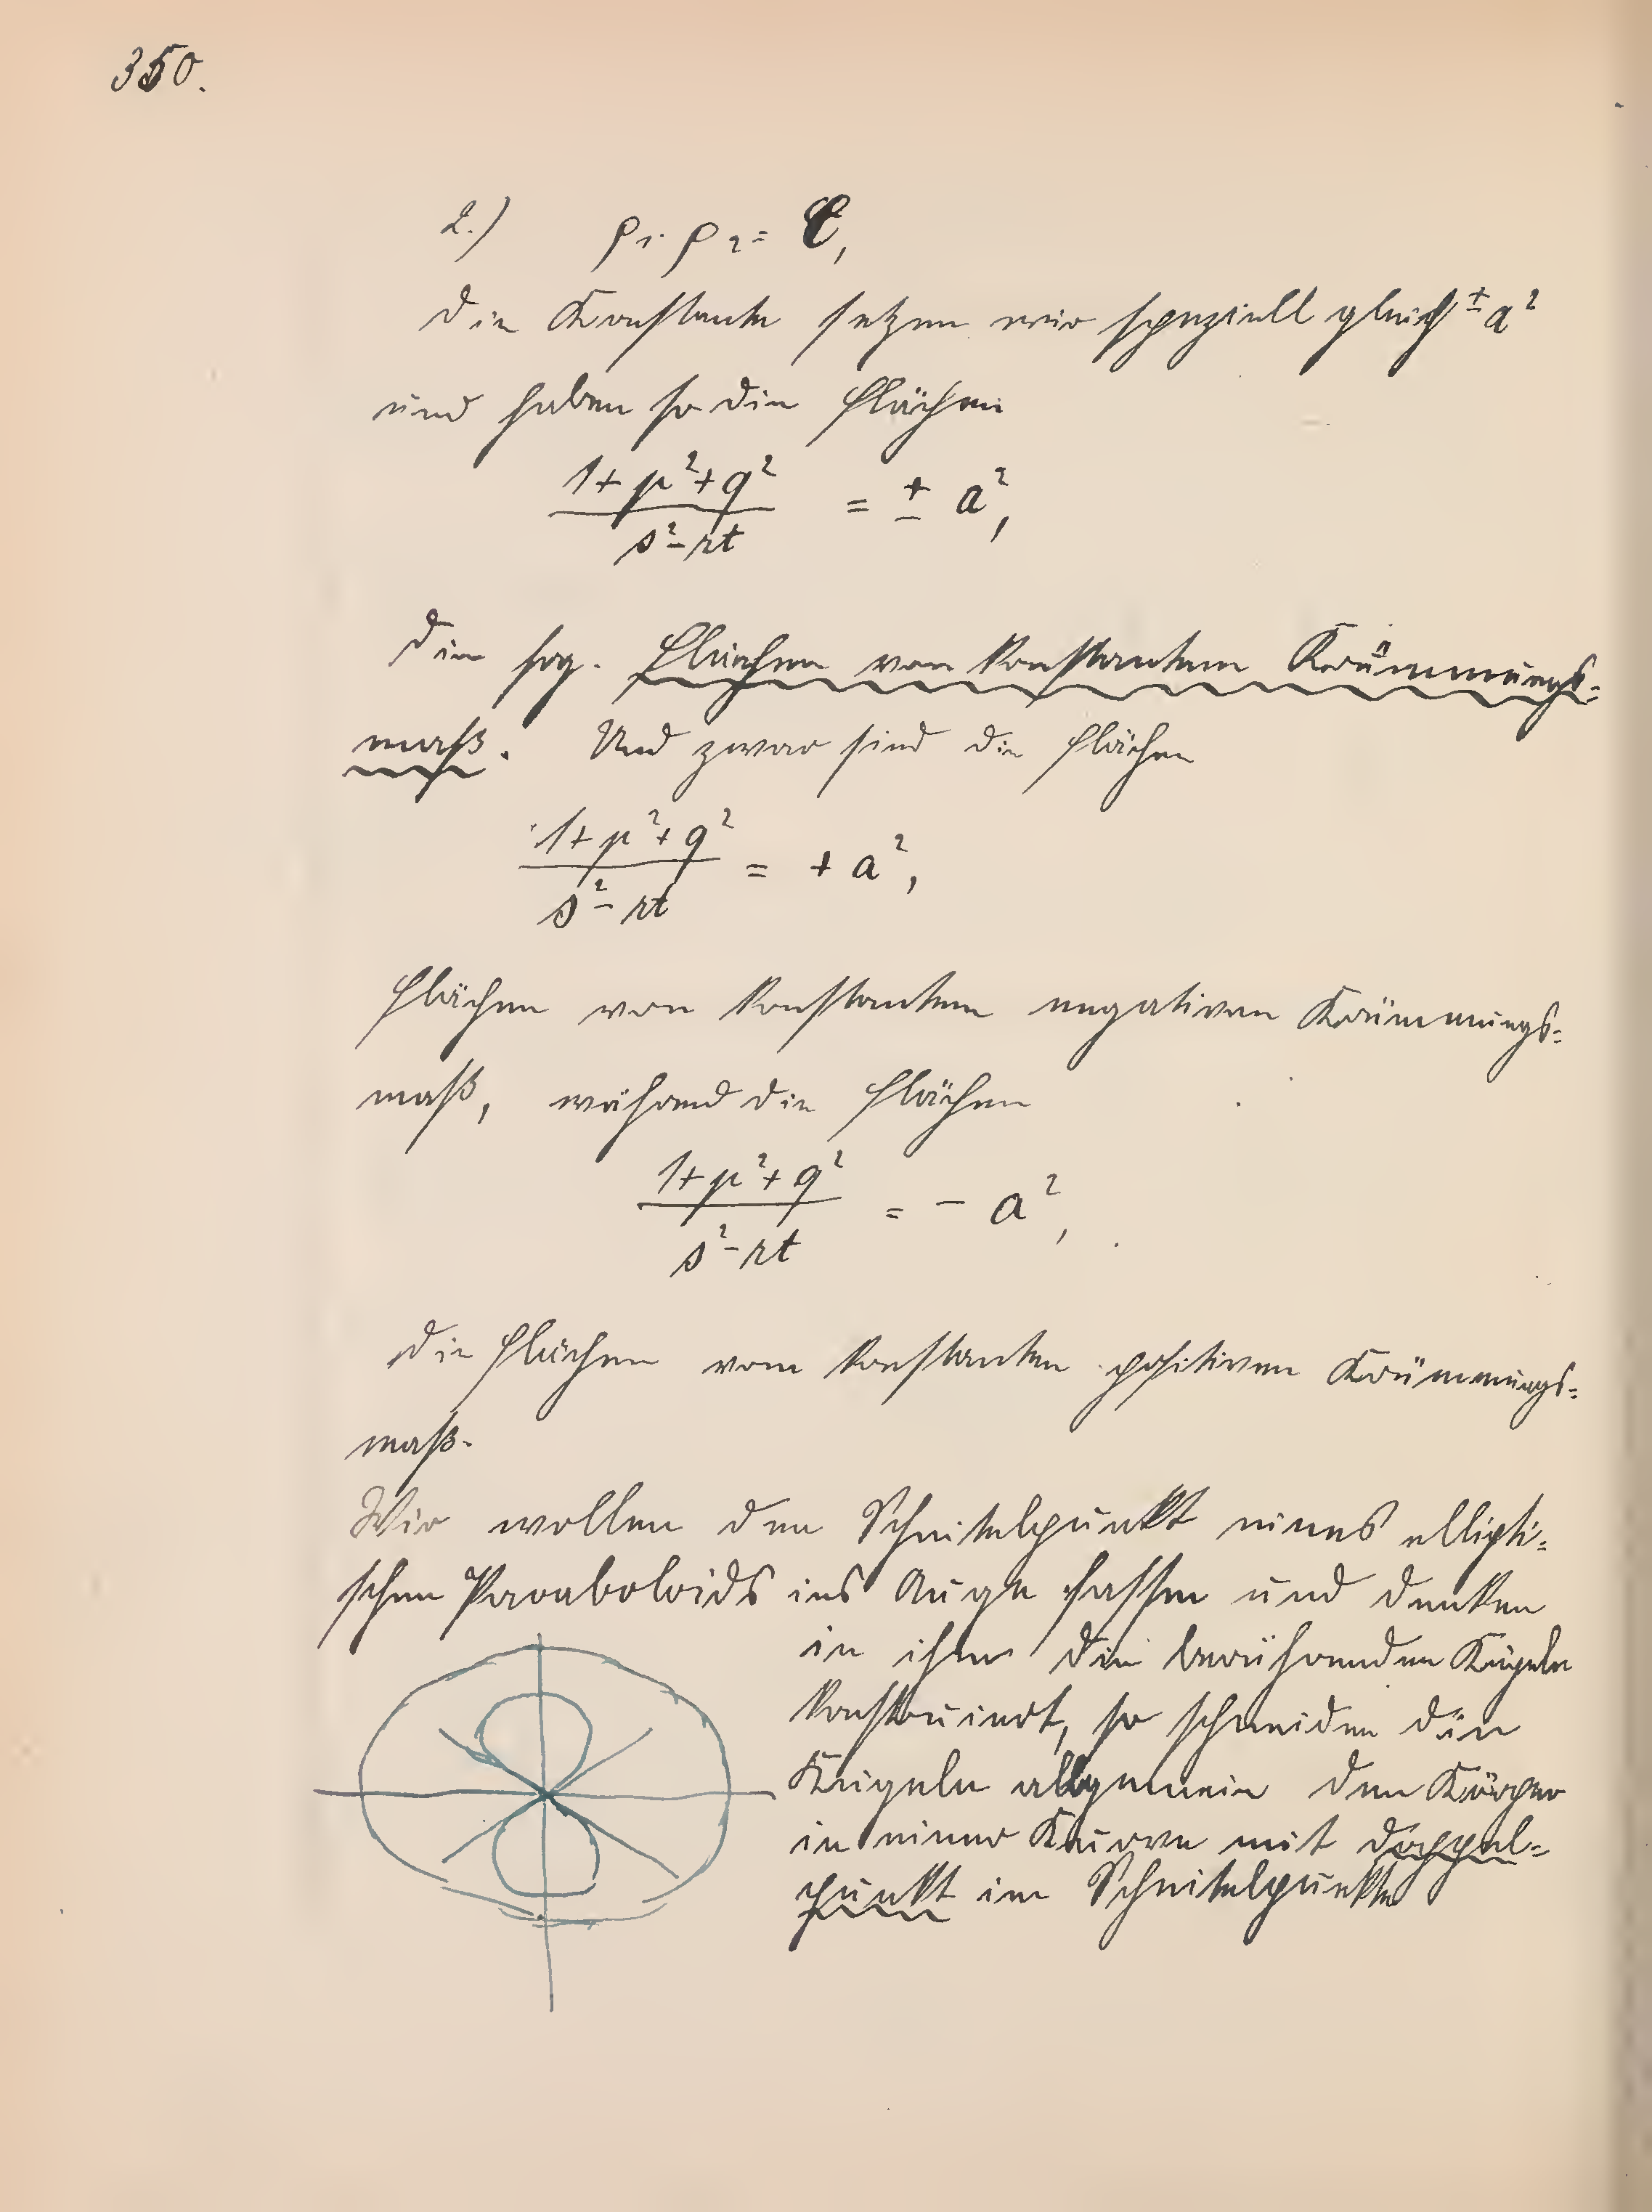 350.
2.) ρ₁·ρ₂ = C,
Die Konstante setzen wir speziell gleich ± a²
und haben so die Flächen
(1+p²+q²)/(s²-rt) = ± a²,
die sog. Flächen von konstantem Krümmungs=
maß. Und zwar sind die Flächen
(1+p²+q²)/(s²-rt) = + a²,
Flächen von konstantem negativen Krümmungs=
maß, während die Flächen
(1+p²+q²)/(s²-rt) = - a²,
die Flächen vom konstanten positiven Krümmungs=
maß.
Wir wollen den Scheitelpunkt eines ellipti=
schen Paraboloids ins Auge fassen und denken
in ihm die berührenden Kugeln
konstruiert, so schneiden die
Kugeln allgemein den Körper
in einer Kurve mit Doppel=
punkt im Scheitelpunkte